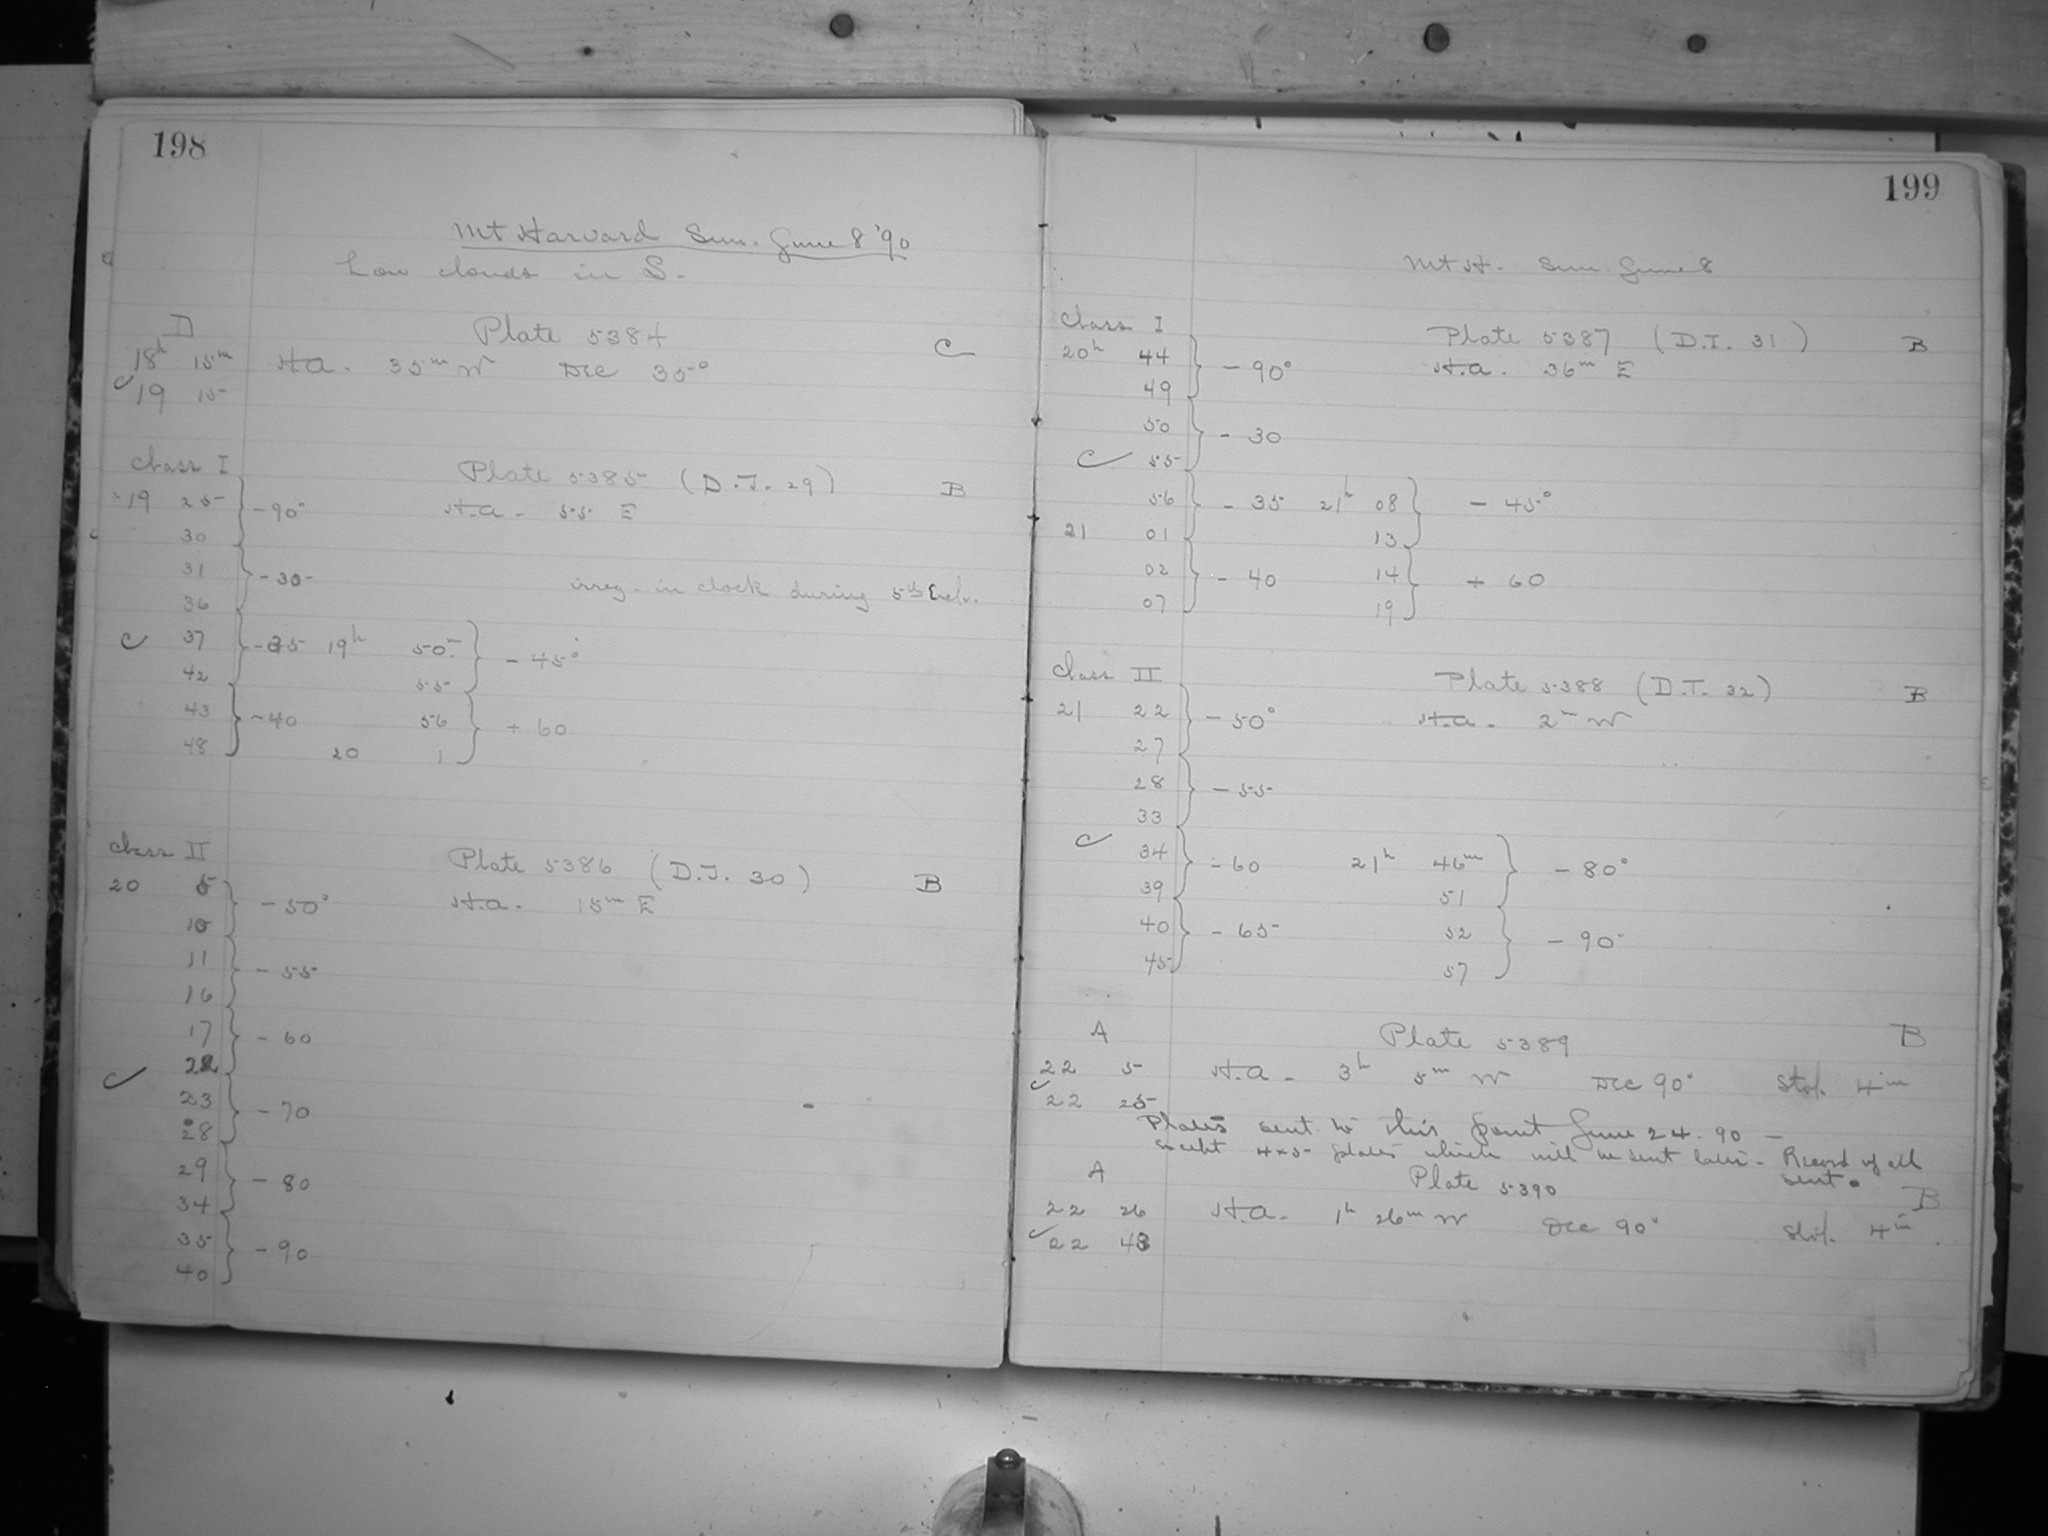 198
Mt Harvard Sun. June 8 '90
Low clouds in S.
D Plate 5384 C
18h 15m H.A. 35m W Dec 35°
19 15
Class I Plate 5385 (D.T. 29) B
19 25 -90° H.A. 55 E
30
31 -30 irreg. in clock during 5th
36
37 -35 19h 50m - 45°
42 55
43 -40 56 + 60
48 20 1
Class II Plate 5386 (D.T. 30) B
20 5 - 50° H.A. 15m E
10
11 - 55
16
17 - 60
22
23 - 70
28
29 - 80
34
35 - 90
40
199
Mt H. Sun. June 8
Class I Plate 5387 (D.T. 31) B
20h 44 - 90° H.A. 36m E
49
50 - 30
55
56 - 35 21h 08 - 45°
21 01 13
02 - 40 14 + 60
07 19
Class II Plate 5388 (D.T. 32) B
21 22 - 50° H.A. 2m W
27
28 - 55
33
34 - 60 21h 46m - 80°
39 51
40 - 65 52 - 90°
45 57
A Plate 5389 B
22 5 H.A. 3h 5m W Dec 90° Stop. 4in
22 25
Plates sent to this point June 24. 90 —
except 4x5 plates which will be sent later - Record of all
sent.
A Plate 5390 B
22 26 H.A. 1h 26m W Dec 90° Stop. 4in
22 43